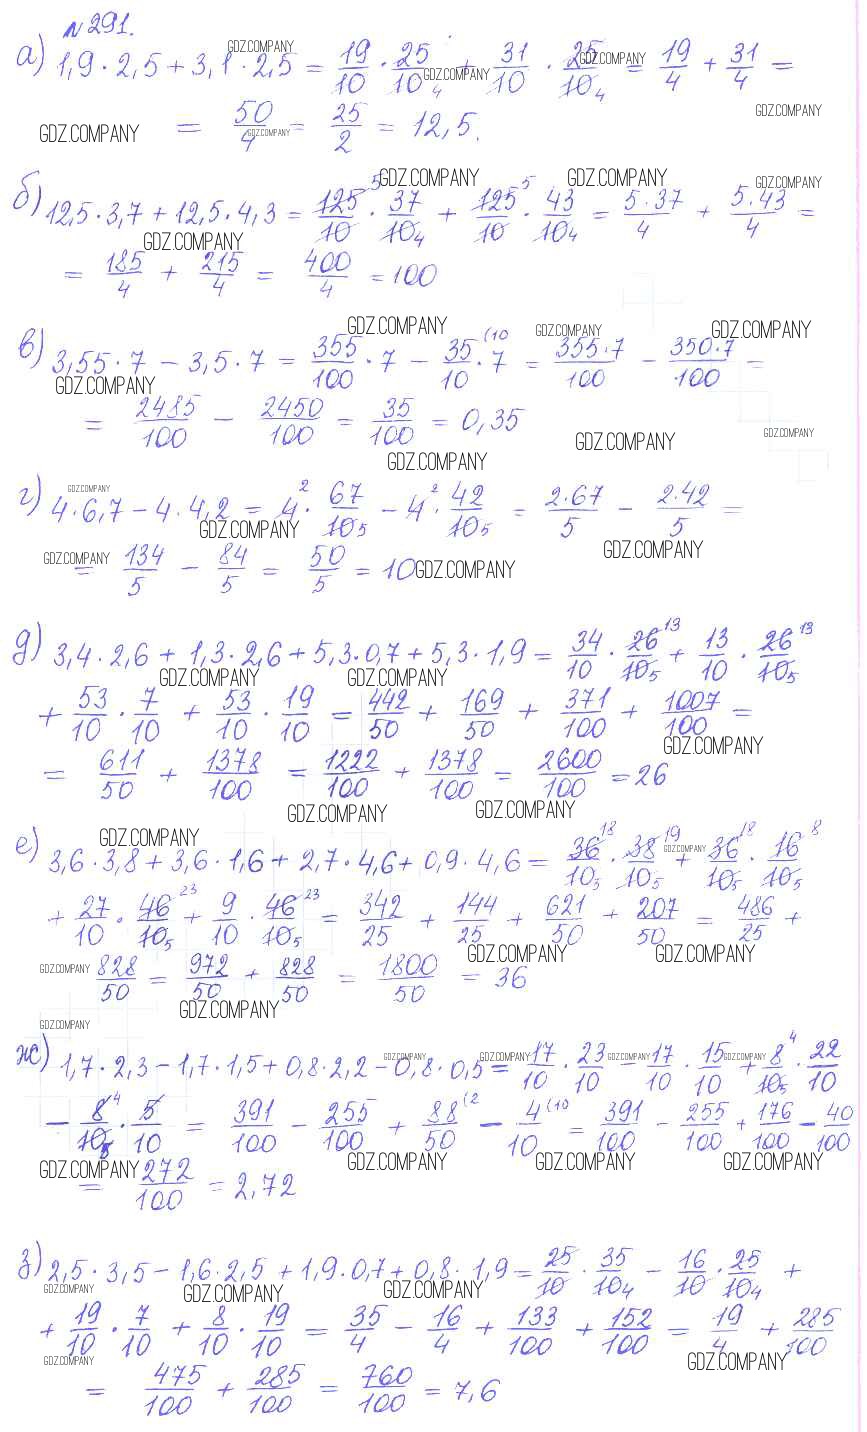 №291.
а) 1,9 · 2,5 + 3,1 · 2,5 = 19/10 · 25/10 4 + 31/10 · 25/10 4 = 19/4 + 31/4 =
= 50/4 = 25/2 = 12,5.
б) 12,5 · 3,7 + 12,5 · 4,3 = 125 5/10 · 37/10 4 + 125 5/10 · 43/10 4 = 5·37/4 + 5·43/4 =
= 185/4 + 215/4 = 400/4 = 100
в) 3,55 · 7 − 3,5 · 7 = 355/100 · 7 − 35/10 (10 · 7 = 355·7/100 − 350·7/100 =
= 2485/100 − 2450/100 = 35/100 = 0,35
г) 4 · 6,7 − 4 · 4,2 = 4 2 · 67/10 5 − 4 2 · 42/10 5 = 2·67/5 − 2·42/5 =
= 134/5 − 84/5 = 50/5 = 10
д) 3,4 · 2,6 + 1,3 · 2,6 + 5,3 · 0,7 + 5,3 · 1,9 = 34/10 · 26 13/10 5 + 13/10 · 26 13/10 5
+ 53/10 · 7/10 + 53/10 · 19/10 = 442/50 + 169/50 + 371/100 + 1007/100 =
= 611/50 + 1378/100 = 1222/100 + 1378/100 = 2600/100 = 26
е) 3,6 · 3,8 + 3,6 · 1,6 + 2,7 · 4,6 + 0,9 · 4,6 = 36 18/10 5 · 38 19/10 5 + 36 18/10 5 · 16 8/10 5
+ 27/10 · 46 23/10 5 + 9/10 · 46 23/10 5 = 342/25 + 144/25 + 621/50 + 207/50 = 486/25 +
828/50 = 972/50 + 828/50 = 1800/50 = 36
ж) 1,7 · 2,3 − 1,7 · 1,5 + 0,8 · 2,2 − 0,8 · 0,5 = 17/10 · 23/10 − 17/10 · 15/10 + 8 4/10 5 · 22/10
− 8 4/10 5 · 5/10 = 391/100 − 255/100 + 88/50 (2 − 4/10 (10 = 391/100 − 255/100 + 176/100 − 40/100
= 272/100 = 2,72
з) 2,5 · 3,5 − 1,6 · 2,5 + 1,9 · 0,7 + 0,8 · 1,9 = 25/10 · 35/10 4 − 16/10 · 25/10 4 +
+ 19/10 · 7/10 + 8/10 · 19/10 = 35/4 − 16/4 + 133/100 + 152/100 = 19/4 + 285/100
= 475/100 + 285/100 = 760/100 = 7,6
GDZ.COMPANY